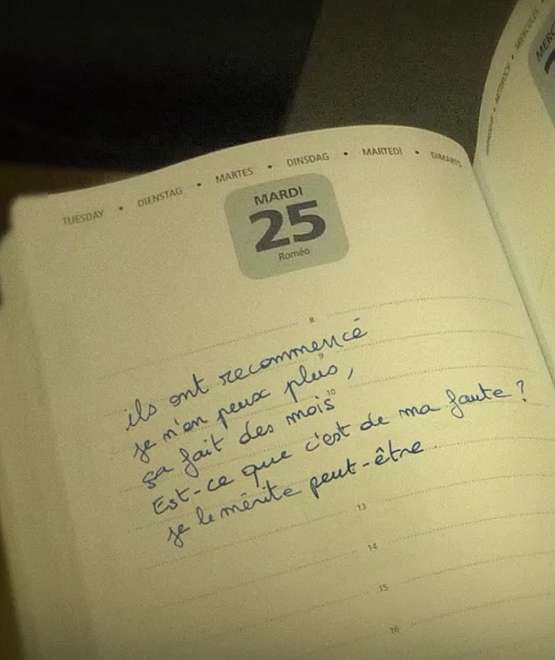 TUESDAY • DIENSTAG • MARTES • DINSDAG • MARTEDI •
MARDI
25
Roméo
8
ils ont recommencé
9
je n'en peux plus,
10
ça fait des mois
Est-ce que c'est de ma faute ?
je le mérite peut-être.
13
14
15
16